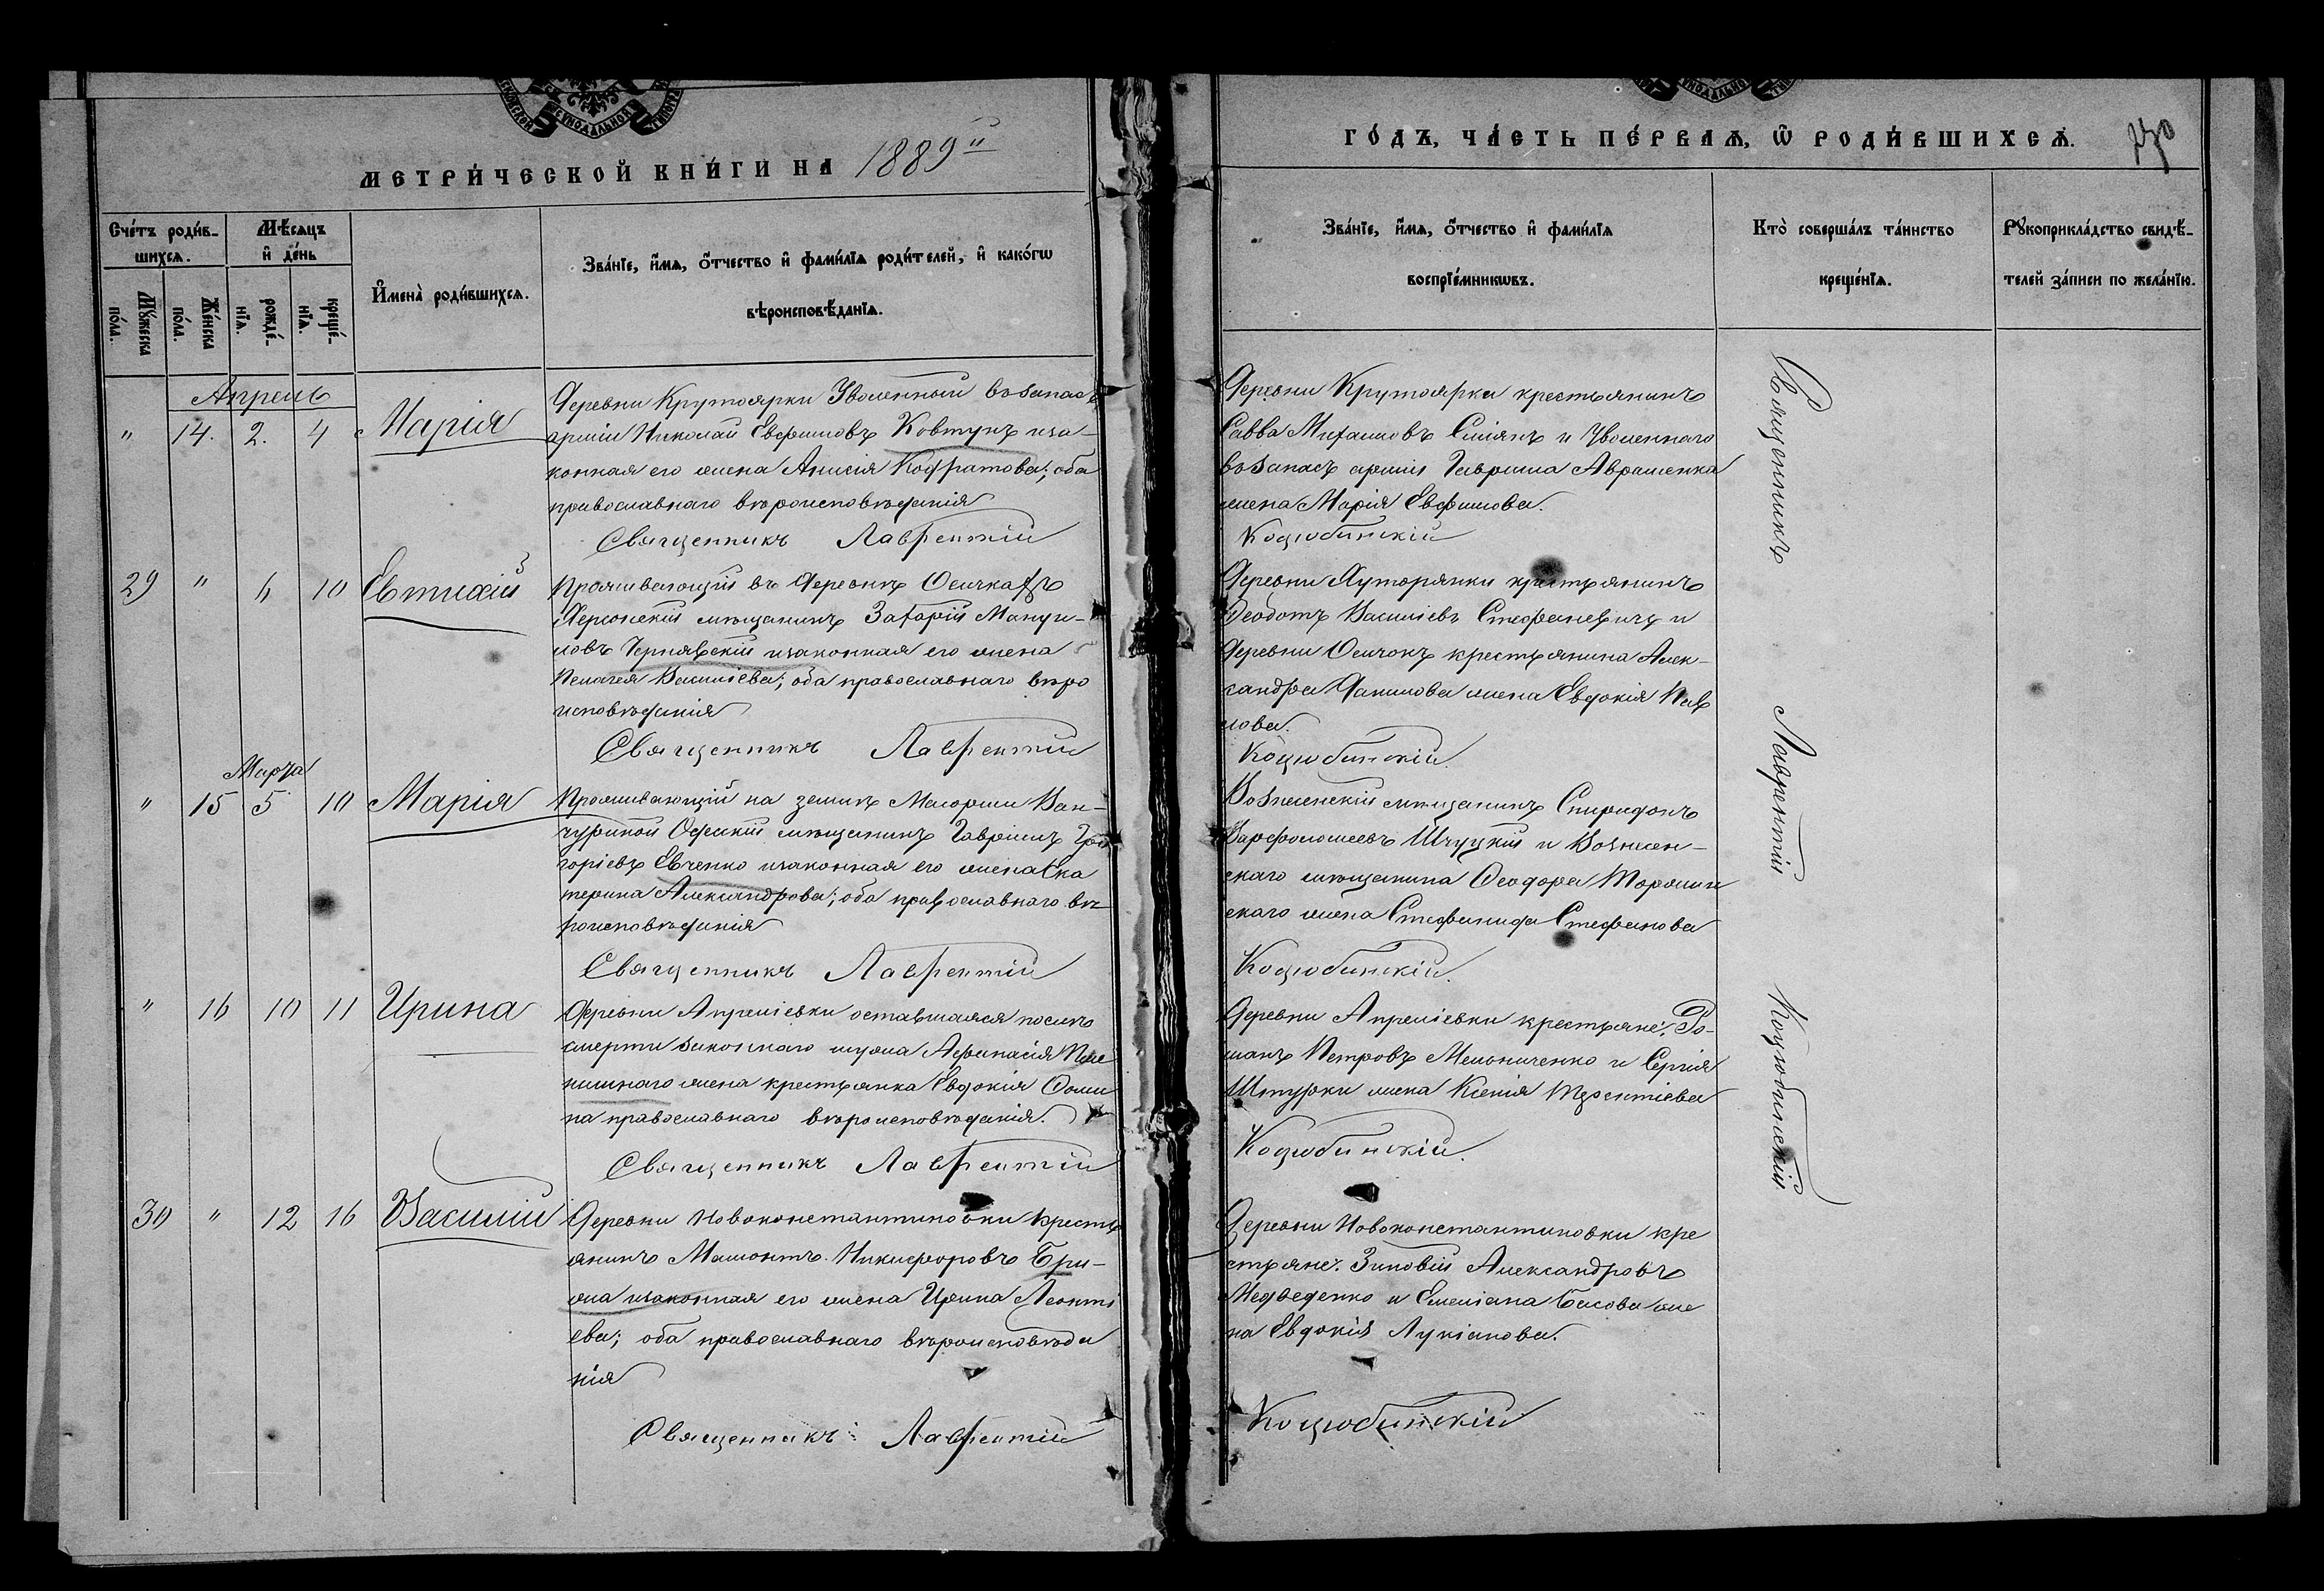 МЕТРИ́ЧЕСКОЙ КНИ́ГИ НА 1889й
Сче́тъ роди́в-
шихсѧ.
Мѣ́сѧцъ
и҆ де́нь
Мꙋ́жеска
по́ла.
Же́нска
по́ла.
рожде́-
нїѧ.
креще́-
нїѧ.
И҆мена̀ роди́вшихсѧ.
Зва́нїе, и҆́мѧ, ѻ҆́тчество и҆ фами́лїѧ роди́телей, и҆ како́гѡ
вѣроисповѣ́данїѧ.
Апрель
" 14. 2. 4 Марія
Деревни Крутоярки Уволенный въ запасъ
арміи Николай Евфимовъ Ковтунъ иза-
конная его жена Анисія Кодратова; оба
православнаго вѣроисповѣданія
Священникъ Лаврентій
29 " 6 10 Евтихій
Проживающій въ деревнѣ Осичкахъ
Херсонскій мѣщанинъ Захарій Мануи-
ловъ Чернявскій изаконная его жена
Пелагея Василіева; оба православнаго вѣро
исповѣданія
Священникъ Лаврентій
Марта
" 15 5 10 Марія
Проживающій на землѣ Маіорши Ван-
чуриной Одескій мѣщанинъ Гавріилъ Гри
горіевъ Евченко изаконная его жена Ека
терина Александрова; оба православнаго вѣ
роисповѣданія
Священникъ Лаврентій
" 16 10 11 Ирина
Деревни Апреліевки оставшаяся послѣ
смерти законнаго мужа Афанасія
жена крестьянка Евдокія Ѳоми
на православнаго вѣроисповѣданія.
Священникъ Лаврентій
30 " 12 16 Василій
Деревни Новоконстантиновки кресть
янинъ Мамонтъ Никифоровъ Бри-
жа изаконная его жена Ирина Леонті
ева; оба православнаго вѣроисповѣда
нія
Священникъ Лаврентій
ГО́ДЪ, ЧА́СТЬ ПЕ́РВАѦ, Ѡ҆ РОДИ́ВШИХСѦ.
Зва́нїе, и҆́мѧ, ѻ҆́тчество и҆ фами́лїѧ
воспрїе́мникѡвъ.
Кто̀ соверша́лъ та́инство
креще́нїѧ.
Рꙋкоприкла́дство свидѣ́-
телей за́писи по жела́нїю.
Деревни Крутоярки крестьянинъ
Савва Михаиловъ Сміянъ и Уволеннаго
въ запасъ арміи Гавриила Авраменка
жена Марія Евфимова.
Коцюбинскій
Деревни Хуторянки крестьянинъ
Ѳеодотъ Василіевъ Стефаневичъ и
деревни Осичокъ крестьянина Алек-
сандра Данилова жена Евдокія Пав
лова.
Коцюбинскій.
Вознесенскій мѣщанинъ Спиридонъ
Варфоломеевъ Шчуцкій и Вознесен-
скаго мѣщанина Ѳеодора
скаго жена Стефанида Стефанова
Коцюбинскій.
Деревни Апреліевки крестьяне: Ро-
манъ Петровъ Мельниченко и Сергія
Штурки жена Ксенія Терентіева
Коцюбинскій.
Деревни Новоконстантиновки кре
стьяне: Зиновій Александровъ
Медведенко и Емеліана Басова же
на Евдокія Лукіанова.
Коцюбинскій
Священникъ Лаврентій Коцюбинскій